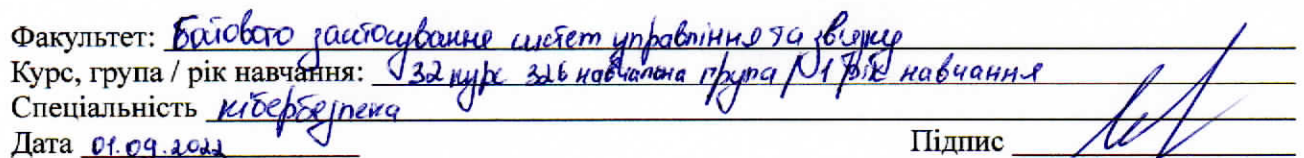 Факультет: Бойового застосування систем управління та зв'язку
Курс, група / рік навчання: 32 курс 326 навчальна група / 1 рік навчання
Спеціальність кібербезпека
Дата 01.09.2022 Підпис